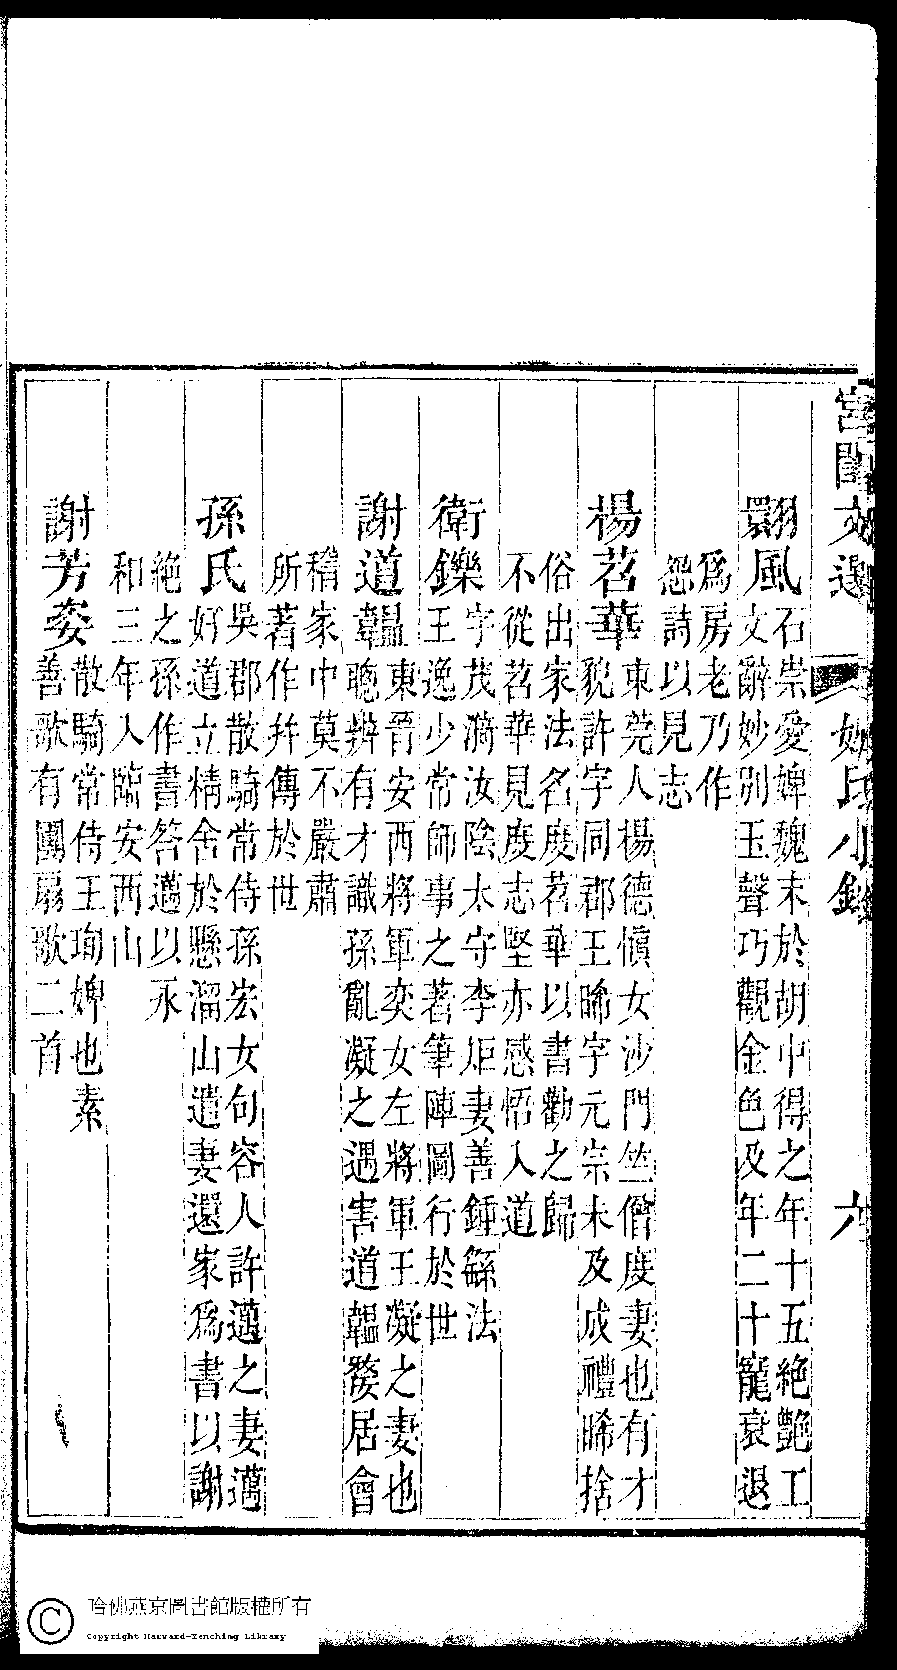 宮閨文選 姓氏小錄 六
翾風石崇愛婢魏末於胡中得之年十五絶艷工
文辭妙別玉聲巧觀金色及年二十寵衰退
爲房老乃作
怨詩以見志
楊苕華東莞人楊德愼女沙門竺僧度妻也有才
貌許字同郡王晞字元宗未及成禮晞捨
俗出家法名度苕華以書勸之歸
不從苕華見度志堅亦感悟入道
衛鑠字茂漪汝陰太守李矩妻善鍾繇法
王逸少常師事之著筆陣圖行於世
謝道韞東晉安西將軍奕女左將軍王凝之妻也
聰辨有才識孫亂凝之遇害道韞嫠居會
稽家中莫不嚴肅
所著作幷傳於世
孫氏吳郡散騎常侍孫宏女句容人許邁之妻邁
好道立精舍於懸溜山遣妻還家爲書以謝
絶之孫作書答邁以永
和三年入臨安西山
謝芳姿散騎常侍王珣婢也素
善歌有團扇歌二首
哈佛燕京圖書館版權所有
Copyright Harvard-Yenching Library